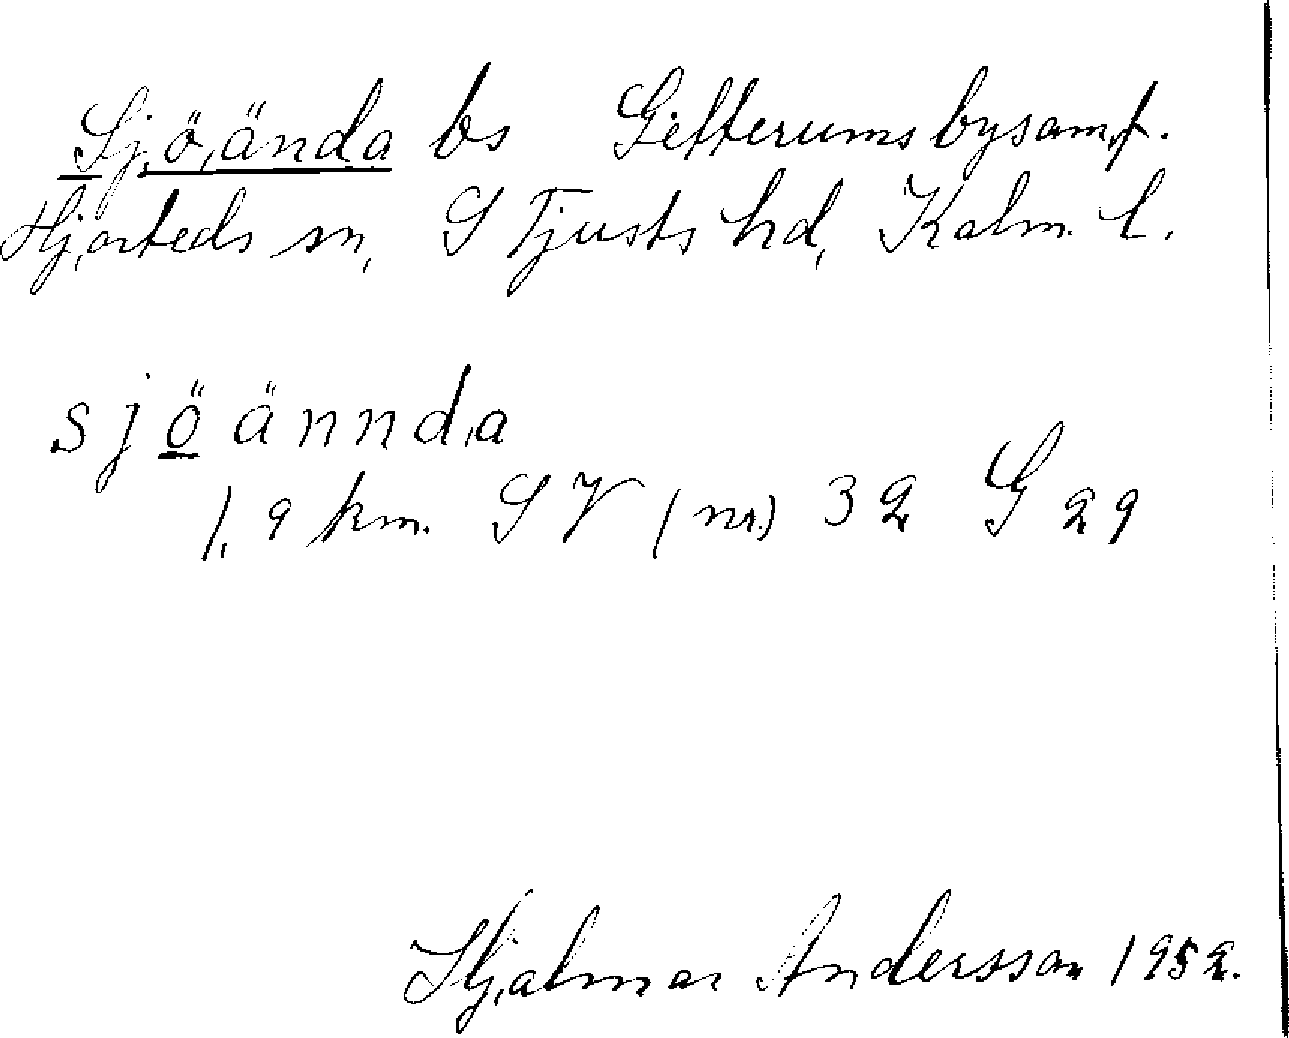 Sjöända bs Gifterums bysamf.
Hjorteds sn, S Tjusts hd, Kalm. l.
sjöännda
1,9 km. SV (nr) 32 G 29
Hjalmar Andersson 1952.